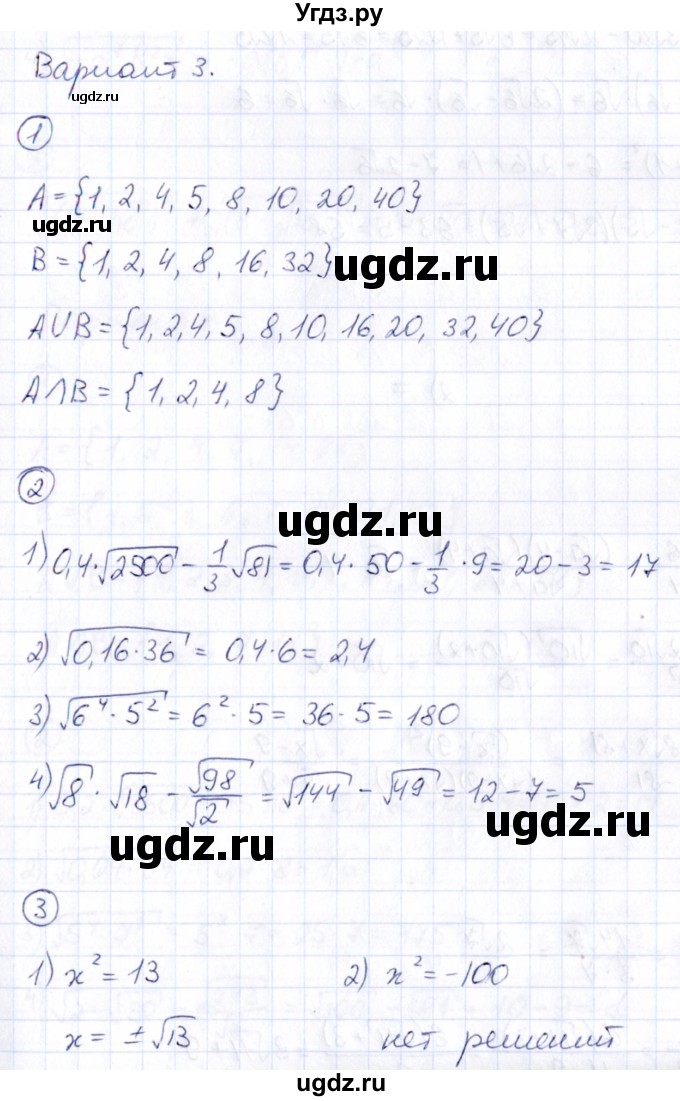 Угдз.ру
Вариант 3.
ugdz.ru
1
A = {1, 2, 4, 5, 8, 10, 20, 40}
ugdz.ru
B = {1, 2, 4, 8, 16, 32}
ugdz.ru
A∪B = {1, 2, 4, 5, 8, 10, 16, 20, 32, 40}
A∩B = {1, 2, 4, 8}
2
ugdz.ru
1) 0,4·√2500 − 1/3 √81 = 0,4 · 50 − 1/3 · 9 = 20 − 3 = 17
2) √0,16·36 = 0,4·6 = 2,4
3) √6⁴·5² = 6²·5 = 36·5 = 180
4) √8 · √18 − √98/√2 = √144 − √49 = 12 − 7 = 5
ugdz.ru
ugdz.ru
3
1) x² = 13 2) x² = −100
x = ±√13 нет решений
ugdz.ru